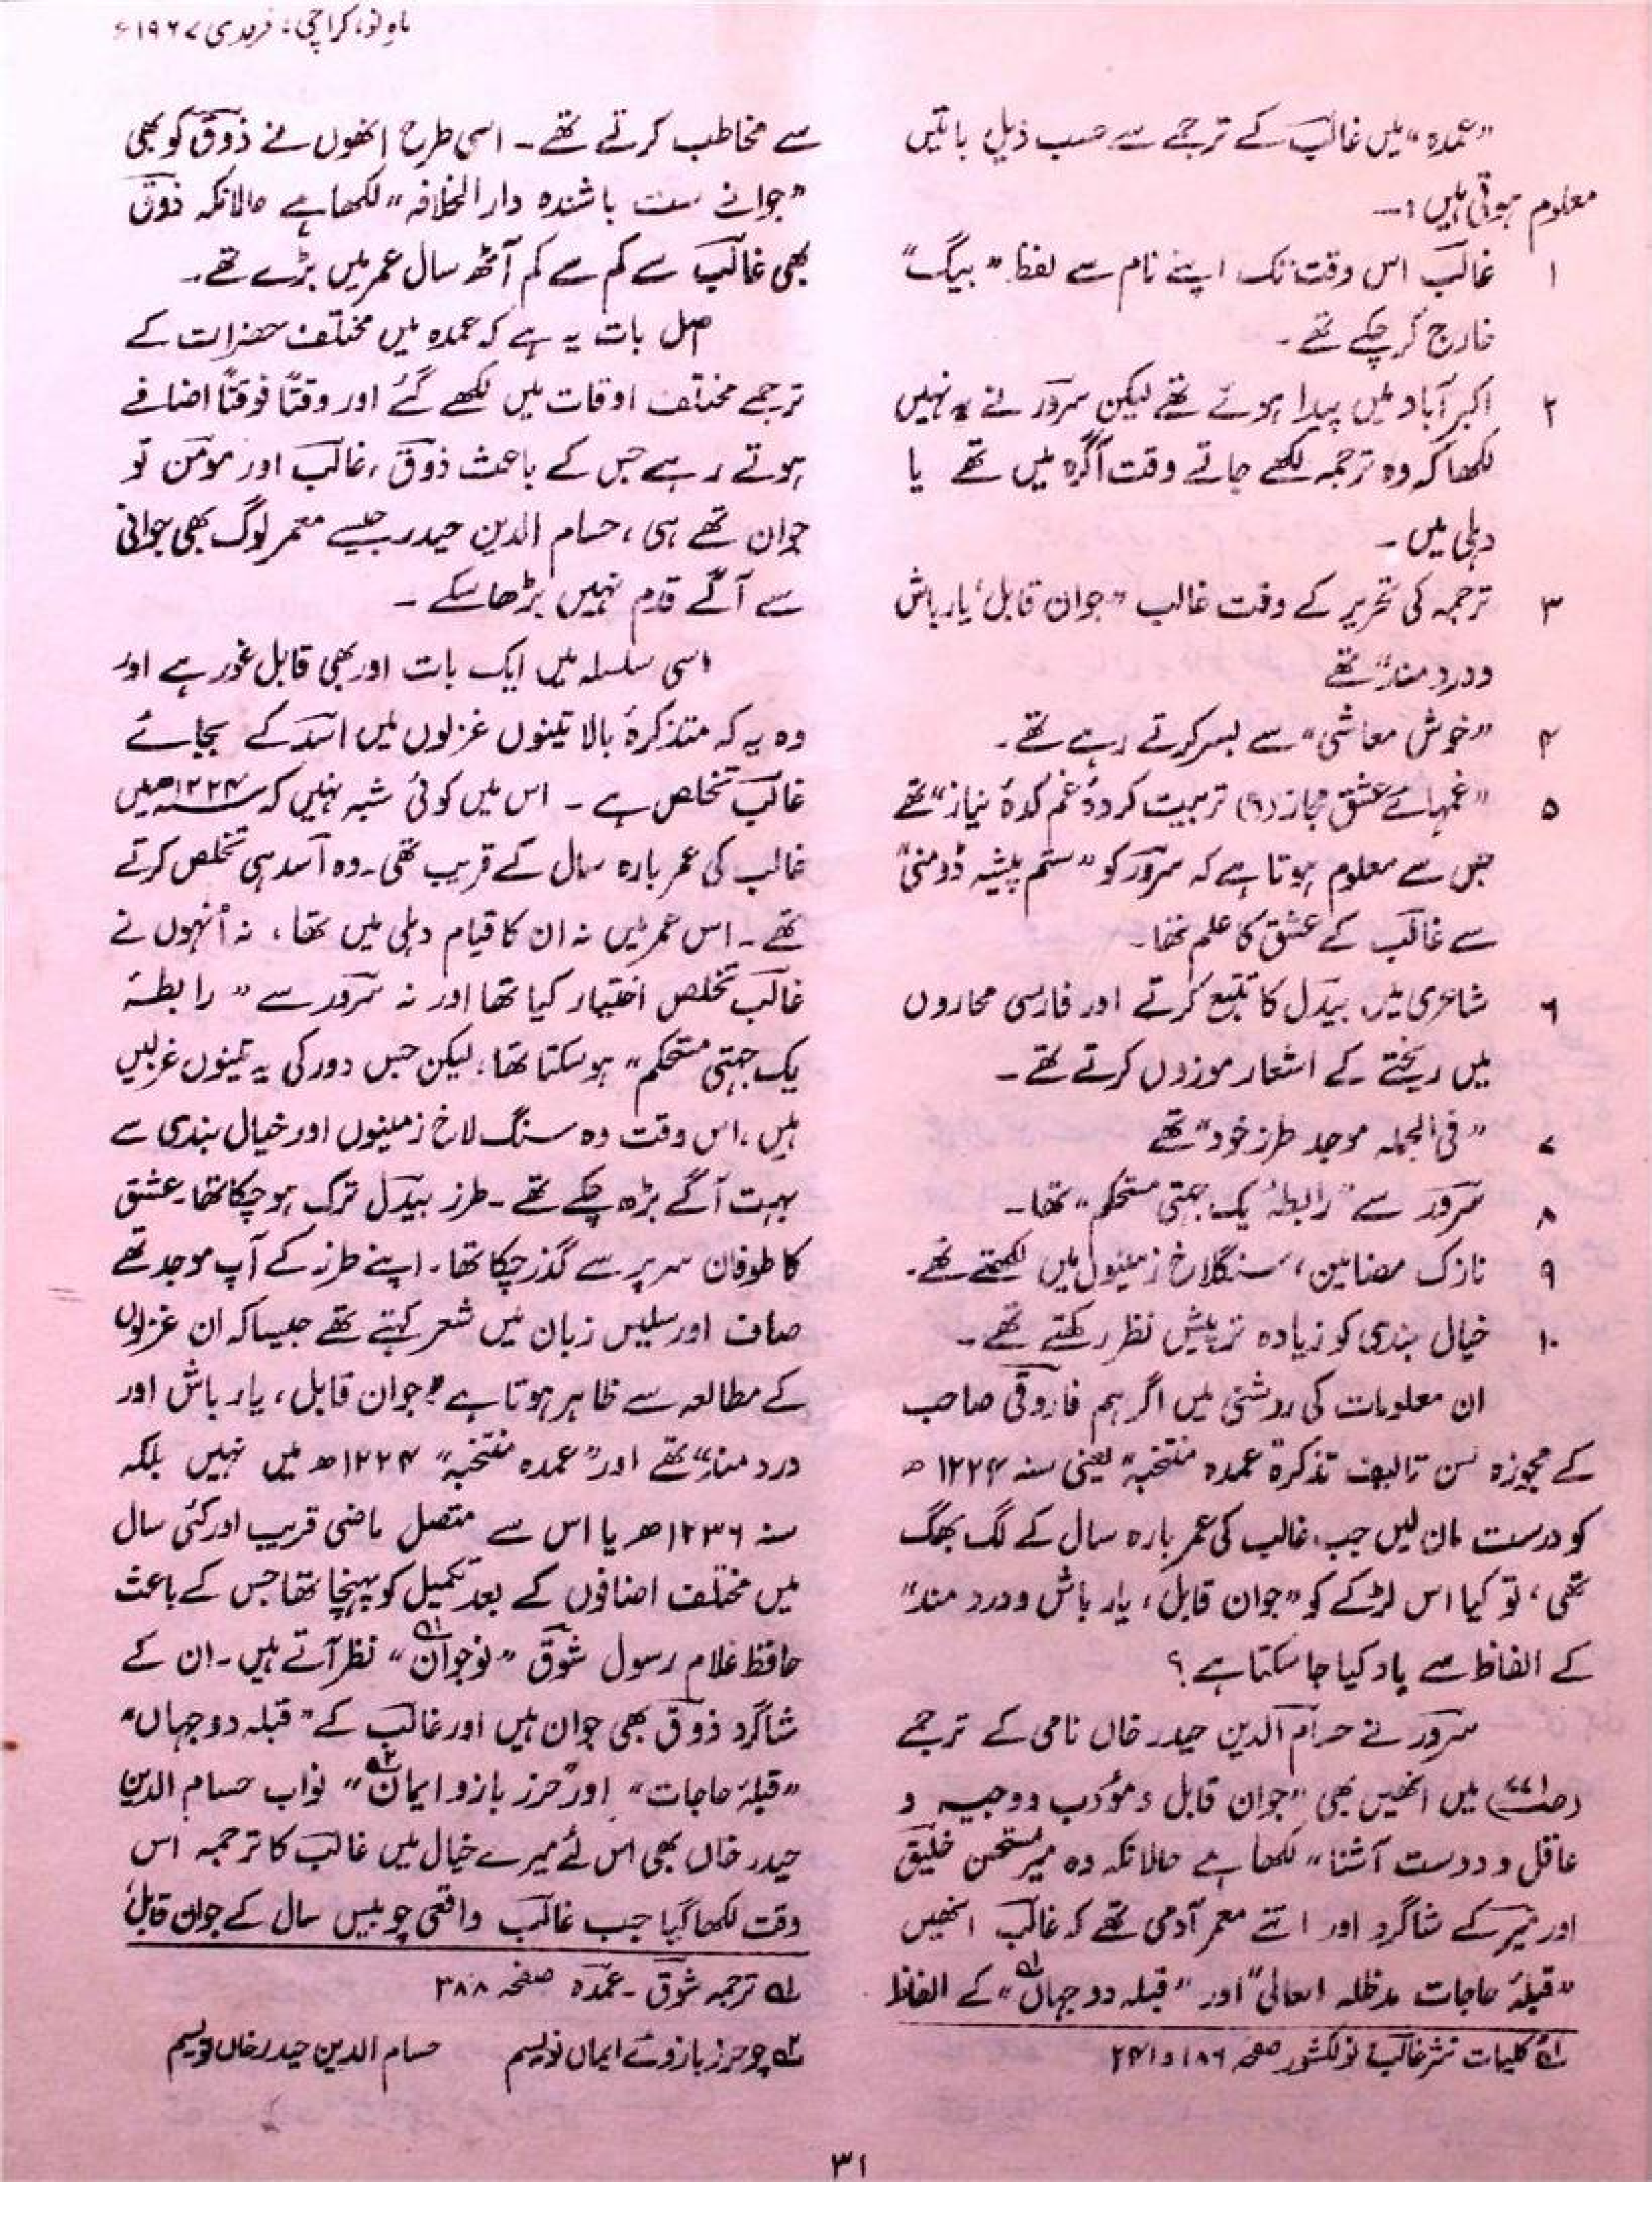 ماہِ نو، کراچی: فروری ۱۹۶۷ء
"عمدہ" میں غالب کے ترجمے سے حسب ذیل باتیں
معلوم ہوتی ہیں :—
۱ غالب اس وقت تک اپنے نام سے لفظ "بیگ"
خارج کر چکے تھے۔
۲ اکبر آباد میں پیدا ہوئے تھے لیکن سرور نے یہ نہیں
لکھا کہ وہ ترجمہ لکھے جاتے وقت آگرہ میں تھے یا
دہلی میں۔
۳ ترجمہ کی تحریر کے وقت غالب "جوان قابل، یار باش
و درد مند" تھے
۴ "خوش معاشی" سے بسر کرتے رہے تھے۔
۵ "غمہائے عشق مجاز (؟) تربیت کردۂ غم کدۂ نیاز" تھے
جس سے معلوم ہوتا ہے کہ سرور کو "ستم پیشہ ڈومنی"
سے غالب کے عشق کا علم تھا۔
۶ شاعری میں بیدل کا تتبع کرتے اور فارسی محاروں
میں ریختے کے اشعار موزوں کرتے تھے۔
۷ "فی الجملہ موجد طرز خود" تھے
۸ سرور سے "رابطۂ یک جہتی مستحکم" تھا۔
۹ نازک مضامین، سنگلاخ زمینوں میں لکھتے تھے۔
۱۰ خیال بندی کو زیادہ تر پیش نظر رکھتے تھے۔
ان معلومات کی روشنی میں اگر ہم فاروقی صاحب
کے مجوزہ سن تالیف تذکرۃ عمدہ منتخبہ" یعنی سنہ ۱۲۲۴ھ
کو درست مان لیں جب غالب کی عمر بارہ سال کے لگ بھگ
تھی، تو کیا اس لڑکے کو "جوان قابل، یار باش و درد مند"
کے الفاظ سے یاد کیا جا سکتا ہے؟
سرور نے حسام الدین حیدر خاں نامی کے ترجمے
میں انھیں بھی "جوان قابل و مؤدب و وجیہ و
عاقل و دوست آشنا" لکھا ہے حالانکہ وہ میر مستحسن خلیق
اور میر کے شاگرد اور اتنے معمر آدمی تھے کہ غالب انھیں
"قبلۂ حاجات مدظلہ العالی" اور "قبلہ دو جہاں"۱؎ کے الفاظ
۱؎ کلیات نثر غالب نولکشور صفحہ ۱۸۶ و ۲۴۱
سے مخاطب کرتے تھے۔ اسی طرح انھوں نے ذوق کو بھی
"جوانے ست باشندہ دار الخلافہ" لکھا ہے حالانکہ ذوق
بھی غالب سے کم سے کم آٹھ سال عمر میں بڑے تھے۔
اصل بات یہ ہے کہ عمدہ میں مختلف حضرات کے
ترجمے مختلف اوقات میں لکھے گئے اور وقتاً فوقتاً اضافے
ہوتے رہے جس کے باعث ذوق، غالب اور مومن تو
جوان تھے ہی، حسام الدین حیدر جیسے معمر لوگ بھی جوانی
سے آگے قدم نہیں بڑھا سکے۔
اسی سلسلہ میں ایک بات اور بھی قابل غور ہے اور
وہ یہ کہ متذکرۂ بالا تینوں غزلوں میں اسد کے بجائے
غالب تخلص ہے۔ اس میں کوئی شبہ نہیں کہ سنہ ۱۲۲۴ھ میں
غالب کی عمر بارہ سال کے قریب تھی۔ وہ اسد ہی تخلص کرتے
تھے۔ اس عمر میں نہ ان کا قیام دہلی میں تھا، نہ اُنہوں نے
غالب تخلص اختیار کیا تھا اور نہ سرور سے "رابطۂ
یک جہتی مستحکم" ہو سکتا تھا، لیکن جس دور کی یہ تینوں غزلیں
ہیں، اس وقت وہ سنگ لاخ زمینوں اور خیال بندی سے
بہت آگے بڑھ چکے تھے۔ طرز بیدل ترک ہو چکا تھا۔ عشق
کا طوفان سر پر سے گذر چکا تھا۔ اپنے طرز کے آپ موجد تھے
صاف اور سلیس زبان میں شعر کہتے تھے جیسا کہ ان غزلوں
کے مطالعہ سے ظاہر ہوتا ہے "جوان قابل، یار باش اور
درد مند" تھے اور "عمدہ منتخبہ" ۱۲۲۴ھ میں نہیں بلکہ
سنہ ۱۲۳۶ھ یا اس سے متصل ماضی قریب اور کئی سال
میں مختلف اضافوں کے بعد تکمیل کو پہنچا تھا جس کے باعث
حافظ غلام رسول شوق "نوجوان"۱؎ نظر آتے ہیں۔ ان کے
شاگرد ذوق بھی جوان ہیں اور غالب کے "قبلہ دو جہاں"
"قبلۂ حاجات" اور "حرز بازو ایمان"۲؎ نواب حسام الدین
حیدر خاں بھی اس لئے میرے خیال میں غالب کا ترجمہ اس
وقت لکھا گیا جب غالب واقعی چوبیس سال کے جوان قابل
۱؎ ترجمہ شوق - عمدہ صفحہ ۳۸۸
۲؎ چو حرز بازوئے ایماں نویسم حسام الدین حیدر خاں نویسم
۳۱